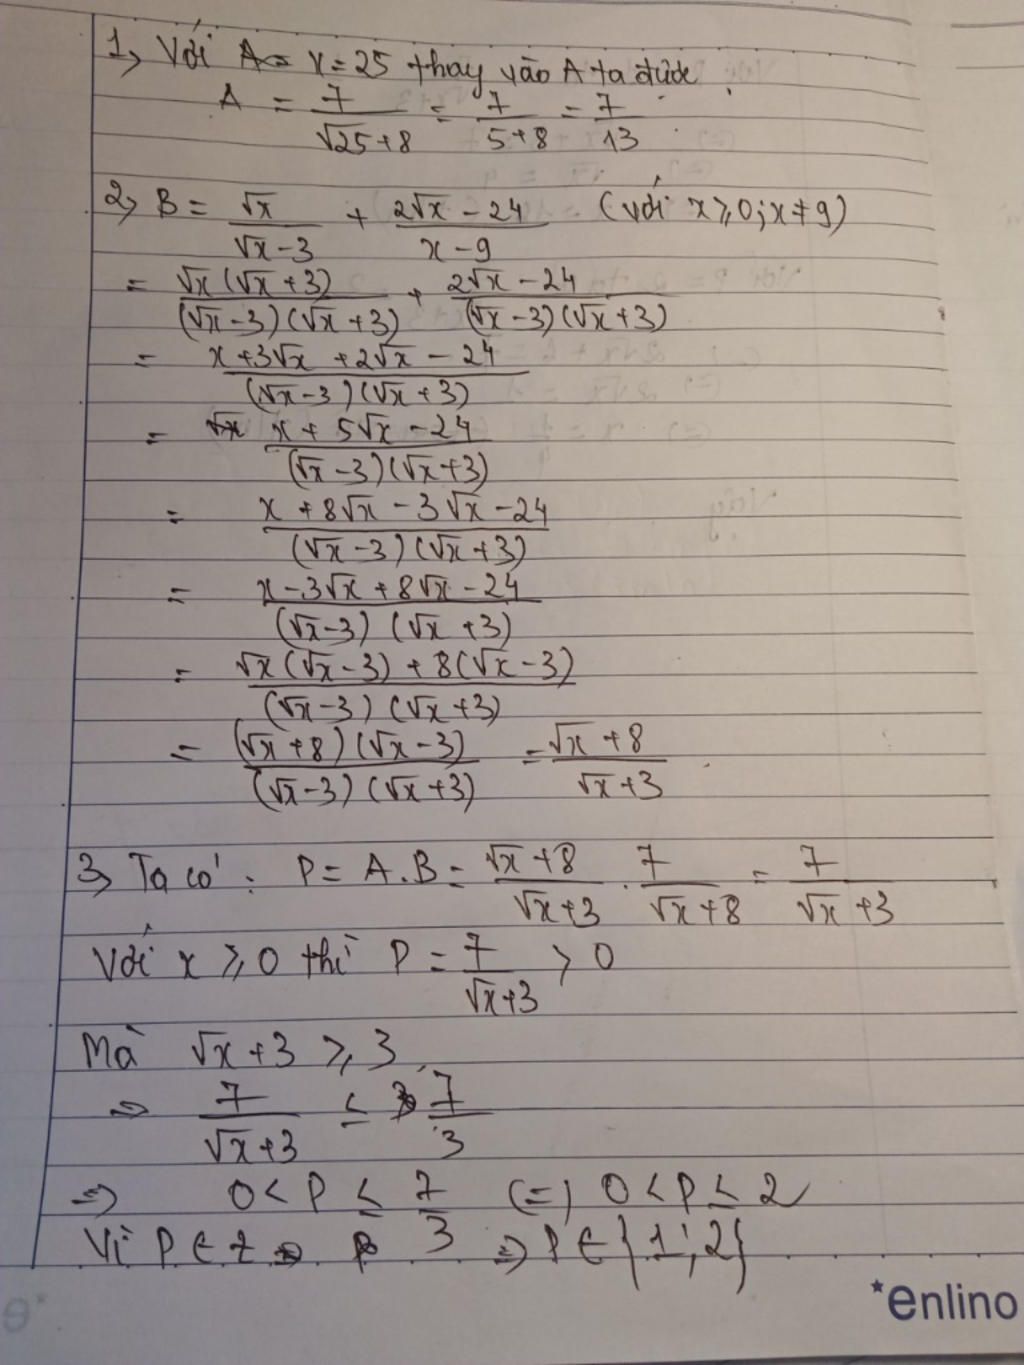 1, Với A= x = 25 thay vào A ta được
A = 7/(√25+8) = 7/(5+8) = 7/13
2, B = √x/(√x-3) + (2√x-24)/(x-9) (với x≥0; x≠9)
= √x(√x+3)/((√x-3)(√x+3)) + (2√x-24)/((√x-3)(√x+3))
= (x+3√x+2√x-24)/((√x-3)(√x+3))
= (x+5√x-24)/((√x-3)(√x+3))
= (x+8√x-3√x-24)/((√x-3)(√x+3))
= (x-3√x+8√x-24)/((√x-3)(√x+3))
= (√x(√x-3)+8(√x-3))/((√x-3)(√x+3))
= (√x+8)(√x-3)/((√x-3)(√x+3)) = (√x+8)/(√x+3)
3, Ta có: P = A.B = (√x+8)/(√x+3) . 7/(√x+8) = 7/(√x+3)
Với x ≥ 0 thì P = 7/(√x+3) > 0
Mà √x+3 ≥ 3
=> 7/(√x+3) ≤ 7/3
=> 0 < P ≤ 7/3 (=) 0 < P ≤ 2
Vì P ∈ Z => P ∈ {1; 2}
*enlino